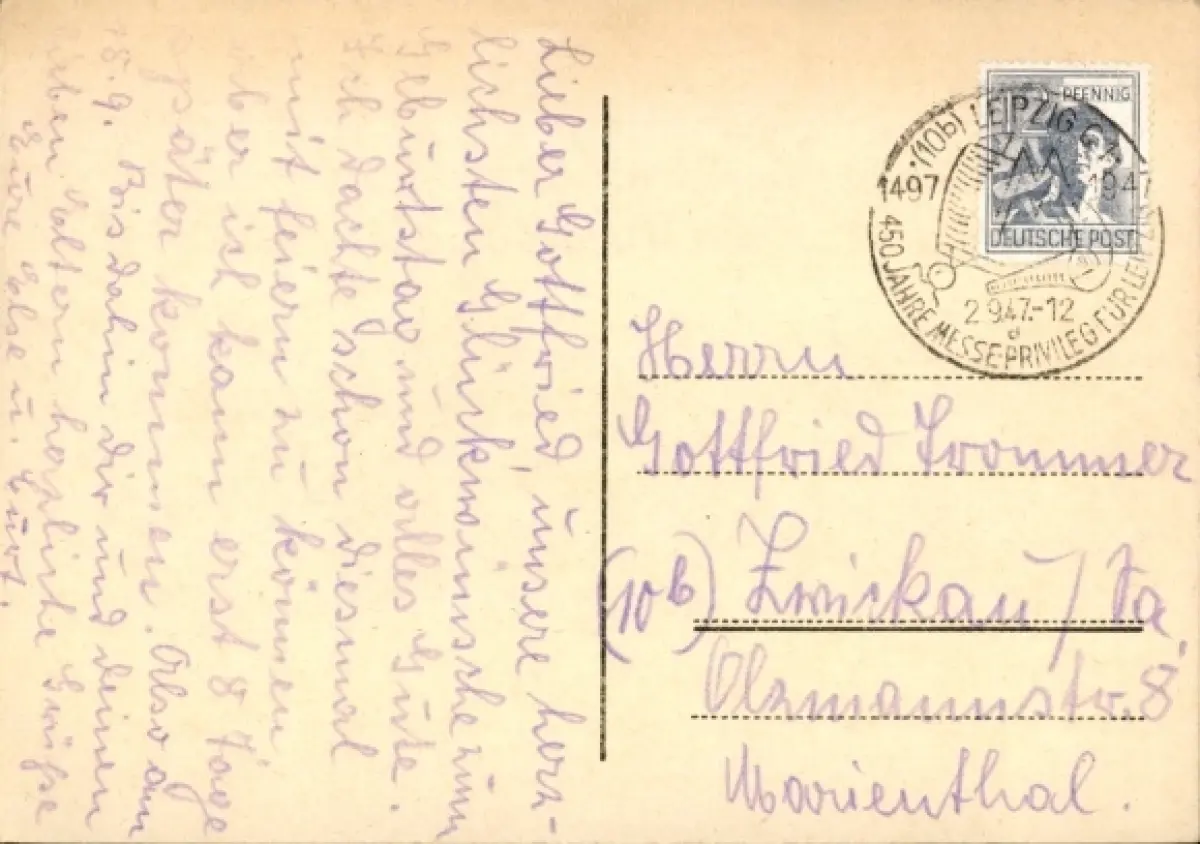 Lieber Gottfried, unsere herz-
lichsten Glückwünsche zum
Geburtstag und alles Gute.
Ich dachte schon diesmal
mit feiern zu können
aber ich kann erst 8 Tage
später kommen. Also am
15.9. Bis dahin dir und deinen
lieben Eltern herzliche Grüße
Eure Else u. Curt.
PFENNIG
DEUTSCHE POST
(10b) LEIPZIG C
1497 1947
2.9.47.-12
d
450 JAHRE MESSEPRIVILEG FÜR LEIPZIG
Herrn
Gottfried Trommer
(10b) Zwickau / Sa
Olzmannstr. 8
Marienthal.